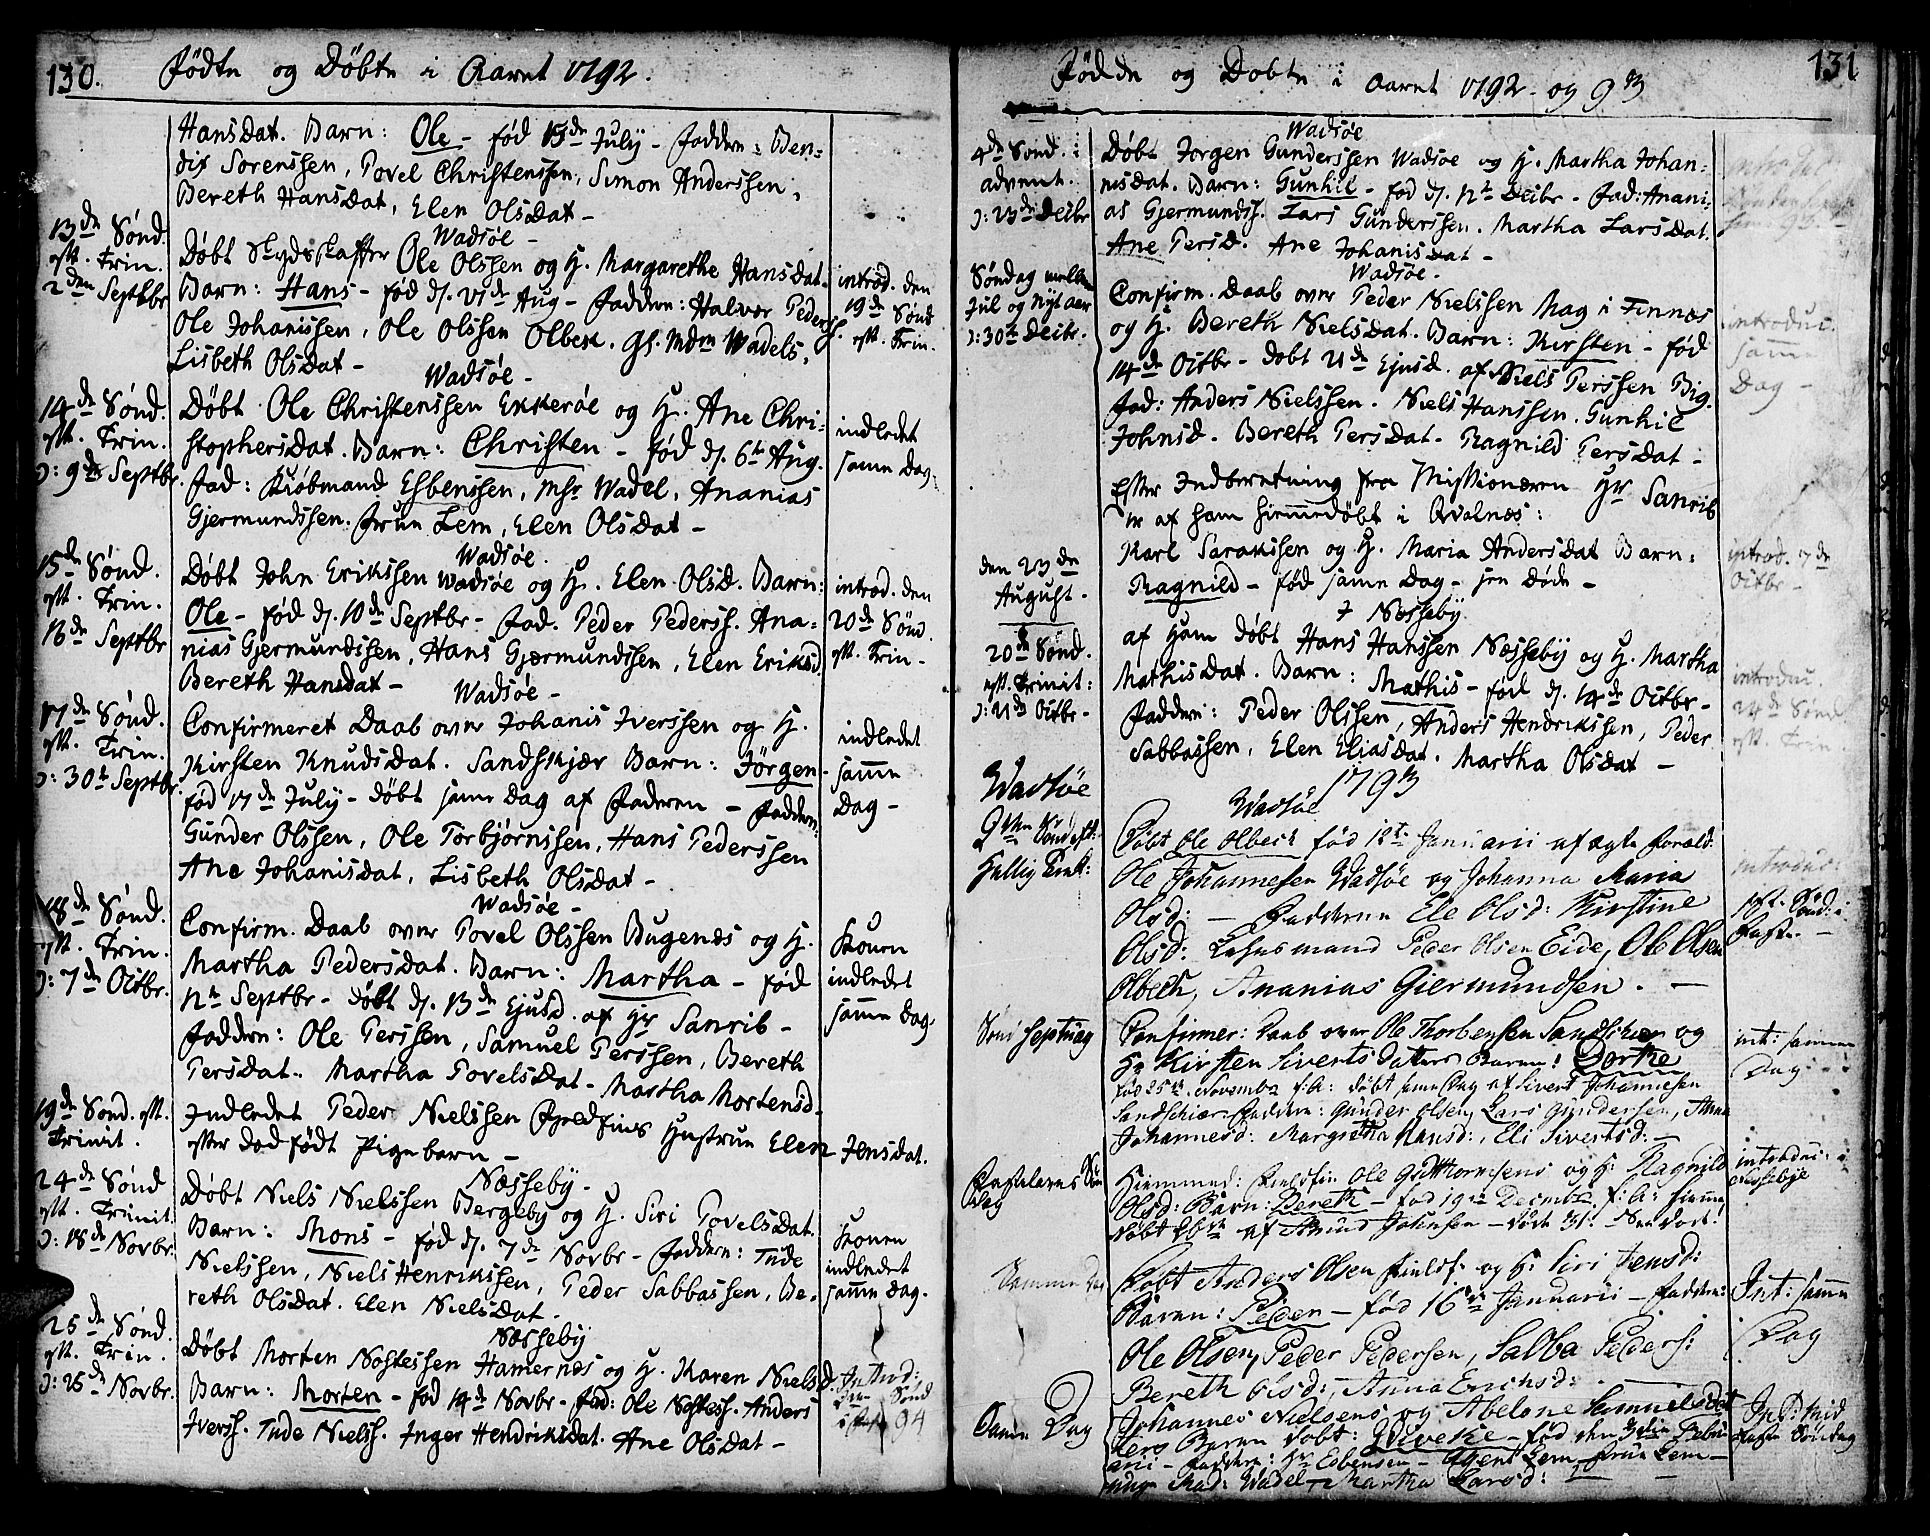 130. Födte og Döbte i Aaret 1792.
Hansdat. Barn: Ole - fød 15de July - Faddere: Ben-
dix Sørenssen, Povel Christenssen, Simon Anderssen,
Bereth Hansdat, Elen Olsdat -
13de Sønd.
eft. Trin.
2den Septbr
Wadsøe -
Døbt Skydsskaffer Ole Olssen og H. Margarethe Hansdat.
Barn: Hans - fød d. 21de Aug - Faddere: Halvor Pederss.
Ole Johanissen, Ole Olssen Olbek. Gl. Mdm Wadels,
Lisbeth Olsdat -
introd. den
19de Sønd
eft. Trin.
14de Sønd.
eft. Trin.
ɔ: 9de Septbr.
Wadsøe -
Døbt Ole Christenssen Ekkerøe og H. Ane Chri-
stophersdat. Barn: Christen - fød d. 6te Aug.
Fad: Kiøbmand Esbenssen, Msr Wadel, Ananias
Gjermundssen. Frue Lem, Elen Olsdat -
indledet
samme Dag.
15de Sønd.
eft. Trin.
16de Septbr
Wadsøe.
Døbt John Erikssen Wadsøe og H. Elen Olsd. Barn:
Ole - fød d. 10de Septbr - Fad. Peder Pederss. Ana-
nias Gjermundssen, Hans Gjærmundssen, Elen Eriksd.
Bereth Hansdat -
introd. den
20de Sønd.
eft. Trin -
17de Sønd.
eft. Trin.
ɔ: 30te Septbr.
Wadsøe -
Confirmeret Daab over Johanis Iverssen og H.
Kirsten Knudsdat. Sandskjær Barn: Jörgen -
fød 17de July - døbt same Dag af Faderen - Faddere:
Gunder Olssen, Ole Torbjørnssen, Hans Pederssen
Ane Johanisdat, Lisbeth Olsdat -
indledet
samme
Dag -
18de Sønd.
eft. Trin.
ɔ: 7de Octbr.
Wadsøe -
Confirm. Daab over Povel Olssen Bugenæs og H.
Martha Pedersdat. Barn: Martha - fød
12te Septbr - døbt d. 13de Ejusd. af Hr Sanrib -
Faddere: Ole Perssen, Samuel Perssen, Bereth
Persdat. Martha Povelsdat - Martha Mortensd.
Konen
indledet
samme Dag.
19de Sønd. eft.
Trinit.
Indledet Peder Nielssen Fieldfins Hustrue Elen Jensdat.
efter dødfødt Pigebarn -
24de Sønd
eft. Trinit
ɔ: 18de Novbr.
Næsseby -
Døbt Niels Nielssen Bergeby og H. Siri Povelsdat.
Barn: Mons - fød d. 7de Novbr - Faddere: Tude
Nielssen, Niels Henrikssen, Peder Sabbassen, Be-
reth Olsdat. Elen Nielsdat -
Konen
indledet
samme Dag.
25de Sønd.
eft. Trin.
ɔ: 25de Novbr.
Næsseby
Døbt Morten Nostessen Hamernæs og H. Karen Nielsd.
Barn: Morten - fød 14de Novbr - fad: Ole Nostess. Anders
Iverss. Tude Nielss. Inger Hendriksdat. Ane Olsdat -
Sønd
94
Fødde og Døbte i Aaret 1792 - og 93 131
4de Sønd. i
advent.
ɔ: 23de Decbr
Wadsøe
Døbt Jørgen Gunderssen Wadsøe og H. Martha Johan-
nisdat. Barn: Gunhil - fød d. 12te Decbr - Fad: Anani-
as Gjermundss. Lars Gunderssen. Martha Larsdat.
Ane Persd. Ane Johanisdat -
Søndag mellem
Jul og Nyt aar
ɔ: 30te Decbr.
Wadsøe -
Confirm. Daab over Peder Nielssen Mag i Finnæs
og H. Bereth Nielsdat. Barn: Kirsten - fød
14de Octbr - døbt 21de Ejusd. af Niels Perssen Big.
Fad: Anders Nielssen. Niels Hanssen. Gunhil
Johnsd. Bereth Persdat. Ragnild Persdat -
introduc.
samme
Dag -
Efter Indberetning fra Missionæren Hr Sanrib
er af ham hiemmedøbt i Qvalnæs:
den 23de
August -
Karl Sarakssen og H. Maria Andersdat Barn:
Ragnild - fød samme Dag - jen døde -
introd. 17de
Octbr -
20de Sønd.
eft. Trinit:
ɔ: 21de Octbr -
I Næsseby
af ham døbt Hans Hanssen Næsseby og H. Martha
Mathisdat. Barn: Mathis - fød d. 14de Octbr -
Faddere: Peder Olssen, Anders Hendrikssen, Peder
Sabbassen, Elen Eliasdat. Martha Olsdat -
introduc.
24de Sønd
eft. Trin.
1793
Wadsøe
Hellig
Wadsøe
Døbt Ole Olbeck fød 12te Januarii af ægte Foræld:
Ole Johannesen Wadsøe og Johanna Maria
Olsd: - Fadderne Ele Olsd: Kirstine
Olsd: Lehnsmand Peder Olsen Eide, Ole Olsen
Olbech, Ananias Giermundsen. -
introduc:
1ste Sønd: i
Faste. -
Sønd Septuag
Confirmer: Daab over Ole Thorbensen Sandskier og
H: Kirsten Siverts datters Baren: Dorthe
fød 25de November f: A: døbt same Dag af Sivert Johannesen
Sandschiær - Faddere: Gunder Olsen, Lars Gundersen, Anna
Johannesd: Margretha Hansd:, Eli Sivertsd: -
int: samme
Dag -
Fastelavns Søn
Dag
Hiemmed: Fieldfin Ole H: Ragnild
Olsd: Barn: Bereth - fød 19de Decembr f: A: hiemme
døbt af Amund Johnsen -
introduc: i
Samme Dag
Døbt Anders Olsen Fieldf. og H: Siri Jensd:
Baren: Peder - fød 16de Januarii - Faddere:
Ole Olsen, Peder Pedersen, Salba Peders:
Bereth Olsd:, Anna Erichsd: -
Int: samme
Dag
Samme Dag
Johannes Nielsens og Abelone Samuelsdat
ters Baren døbt: Wiveke - fød den 3die Febru
arii - Faddere: Hr Esbensen - Agent Lem - Frue Lem -
Mad: Wadel - Martha Larsd:
Søndag